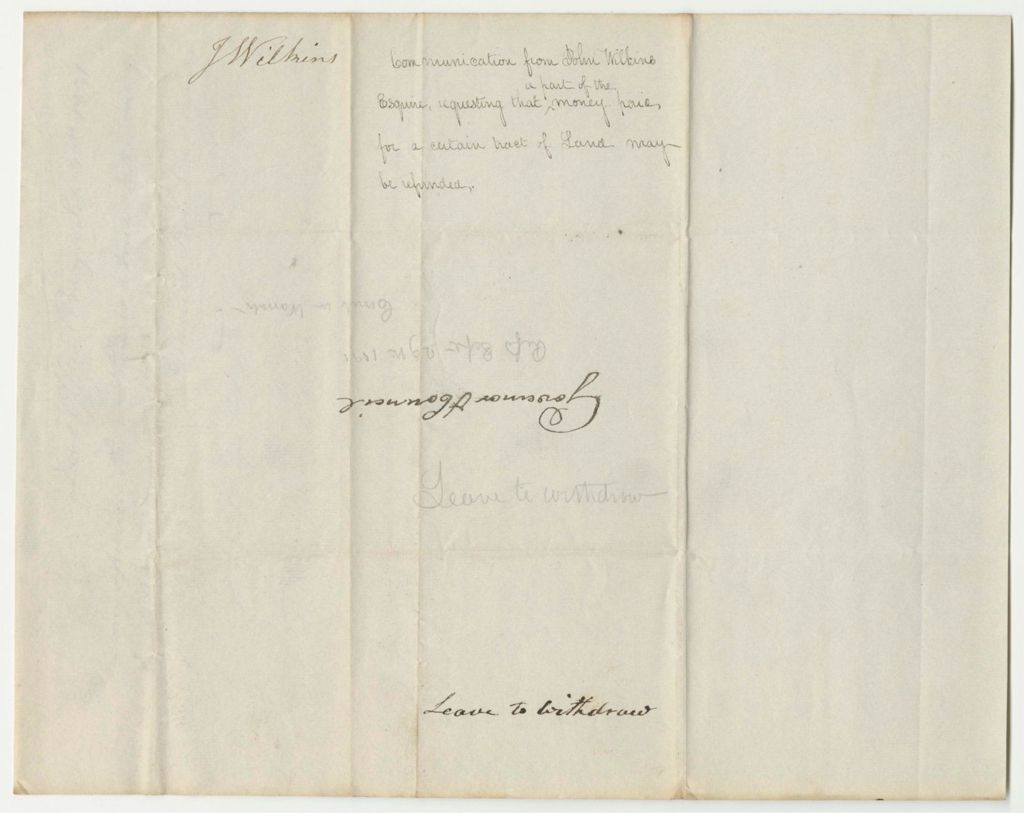 J Wilkins
Communication from John Wilkins
a part of the
Esquire, requesting that ^ money paid,
for a certain tract of Land may
be refunded,.
Governor & Council
Leave to withdraw
Leave to withdraw